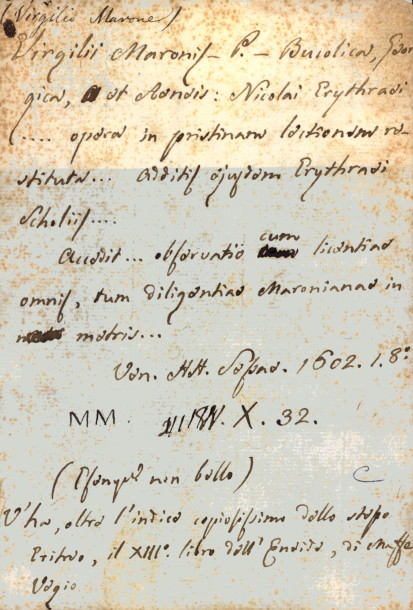 (Virgilio Marone)
Virgilii Maronis - P. - Bucolica, Geor-
gica, et Aeneis: Nicolai Erythraei
.... opera in pristinam lectionem re-
stituta... Additis ejusdem Erythraei
Scholiis....
Accedit... observatio cum licentiae
omnis, tum diligentiae Maronianae in
metris...
Ven. HH. Sessae. 1602. 1. 8.°
MM. X. 32.
(Esempl.e non bello)
V'ha, oltre l'indice copiosissimo dello stesso
Eritreo, il XIII.° libro dell'Eneide, di Maffeo
Vegio
C